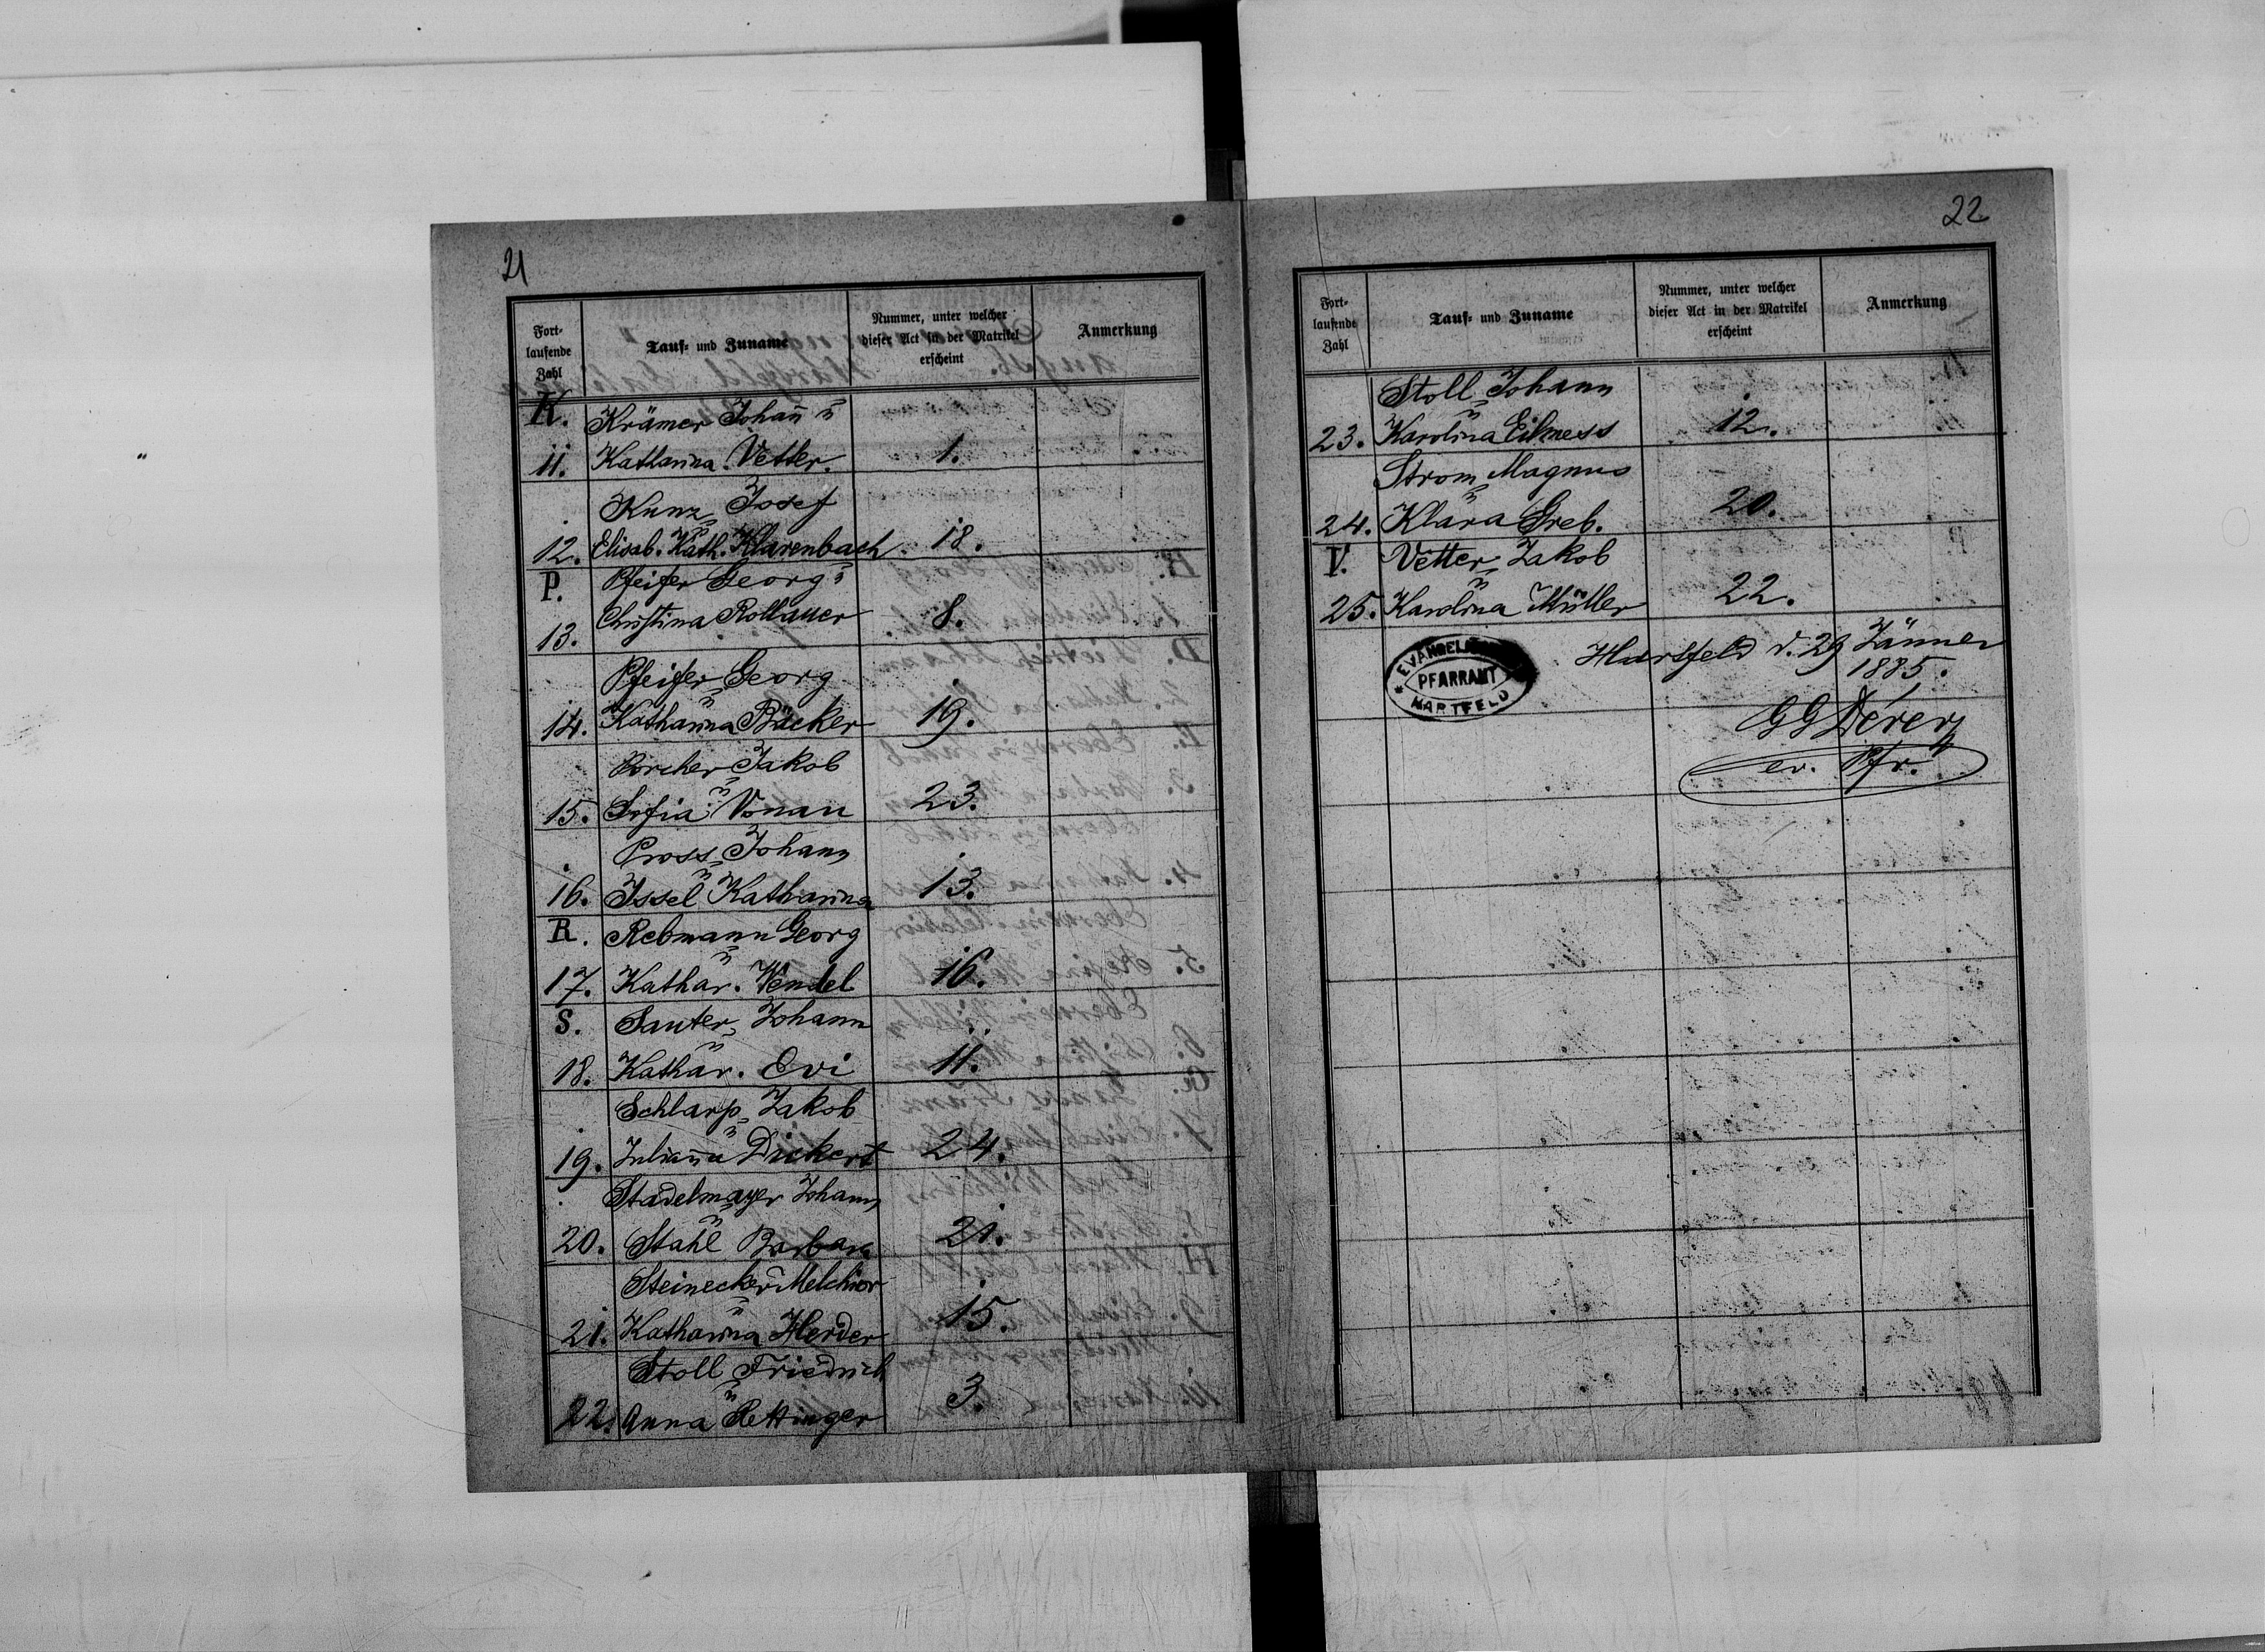 21
Fort-
laufende
Zahl
Tauf- und Zuname
Nummer, unter welcher
dieser Act in der Matrikel
erscheint
Anmerkung
K. Krämer Johañ ũ
11. Katharina Vetter. 1.
Kunz Josef
ũ
12. Elisab. Kath. Klarenbach 18.
P. Pfeifer Georg ũ
13. Christina Rollauer 8.
Pfeifer Georg
ũ
14. Katharina Bäcker 19.
Porcher Jakob
ũ
15. Sofia Vonau 23.
Pross Johann
ũ
16. Issel Katharina 13.
R. Rebmann Georg
ũ
17. Kathar. Wendel 16.
S. Sauter Johann
ũ
18. Kathar. Evi 11.
Schlarp Jakob
ũ
19. Juliaña Dickert 24.
Stadelmayer Johann
ũ
20. Stahl Barbara 21.
Steinecker Melchior
ũ
21. Katharina Herder 15.
Stoll Friedrich
ũ
22. Anna Rettinger 3.
22
Fort-
laufende
Zahl
Tauf- und Zuname
Nummer, unter welcher
dieser Act in der Matrikel
erscheint
Anmerkung
Stoll Johann
ũ
23. Karolina Eilmess 12.
Strom Magnus
ũ
24. Klara Greb. 20.
V. Vetter Jakob
ũ
25. Karolina Müller 22.
Hartfeld d. 29 Jänner
1885.
PFARRAMT
HARTFELD
GG Dérer
ev. Pfr.